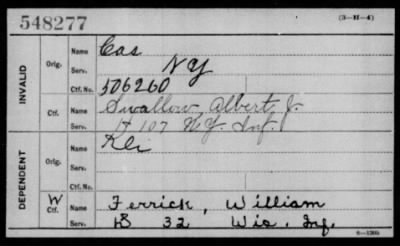 548277
(3-H-4)
INVALID
Orig.
Name Cas
Serv. NY
Ctf. No. 506260
Ctf.
Name Swallow, Albert J.
Serv. H 107 N.Y. Inf.
DEPENDENT
Orig.
Name
Serv.
Ctf. No.
W
Ctf.
Name Ferrick, William
Serv. 32 Wis. Inf.
6-1305